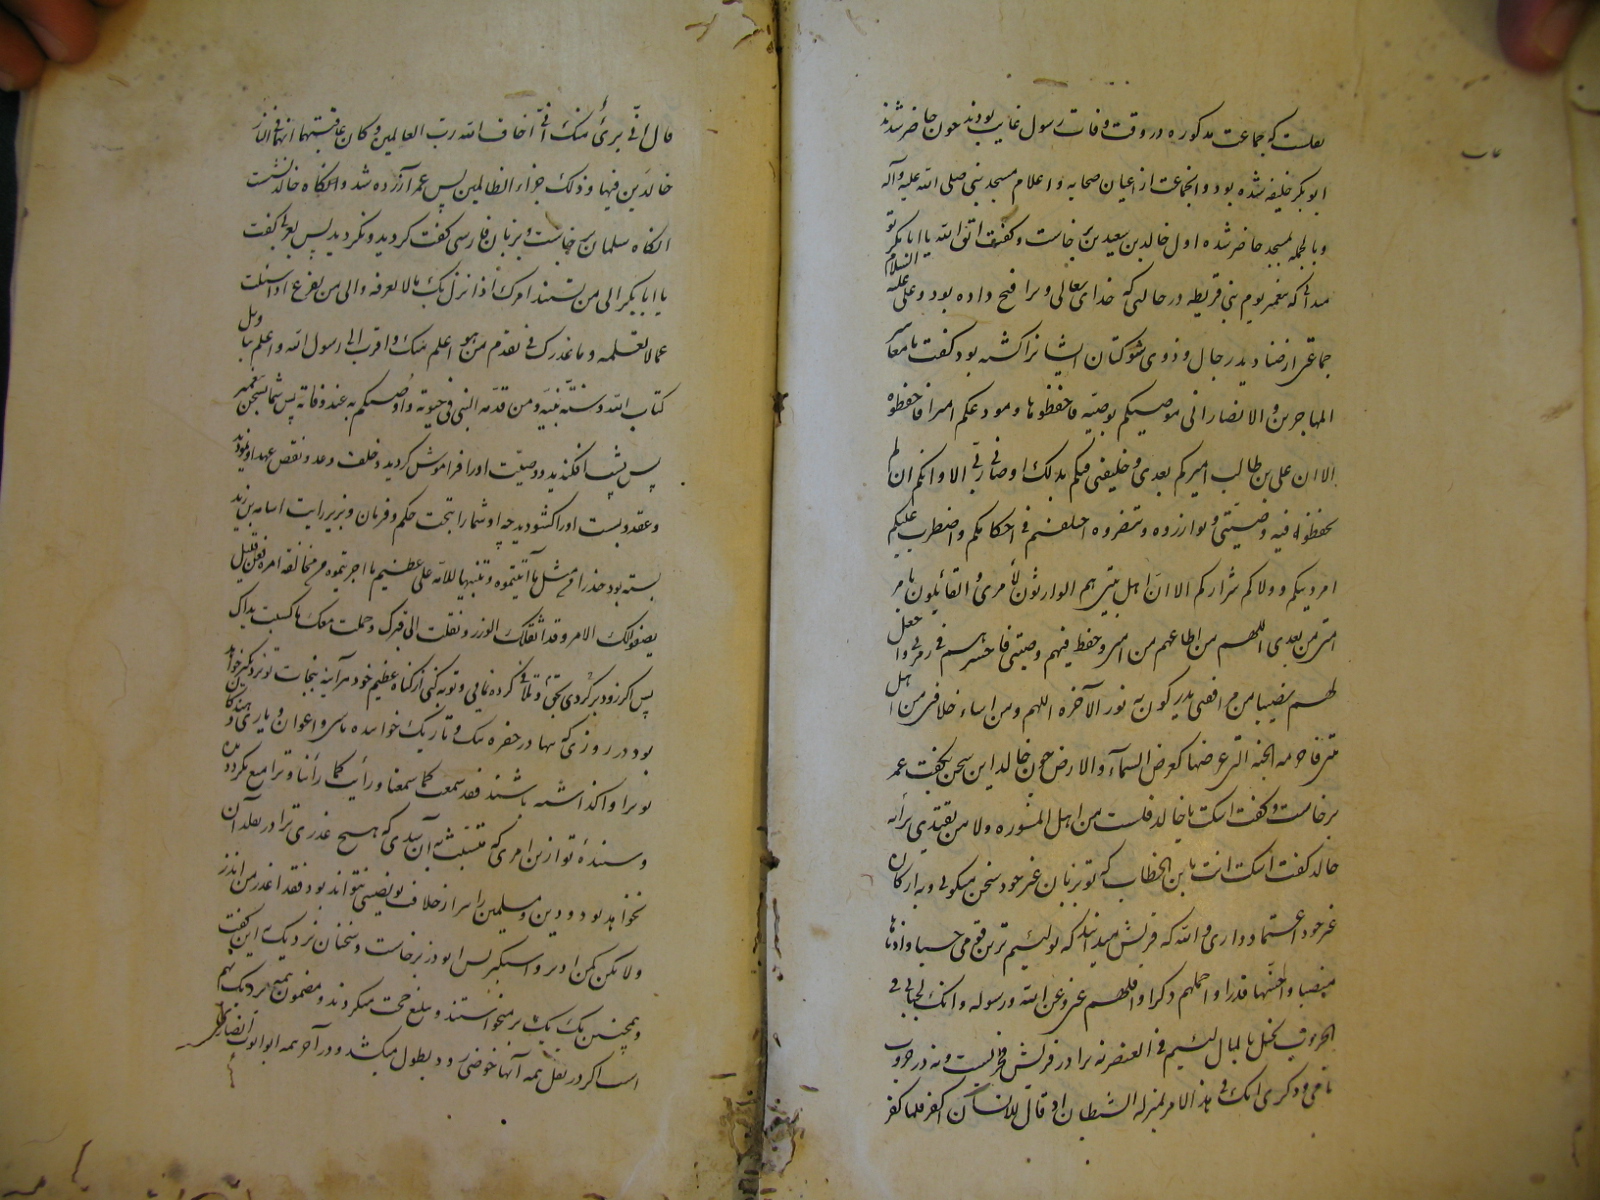 نقلست که جماعت مذکوره در وقت وفات رسول غایب بودند چون حاضر شدند
ابو بکر خلیفه شده بود و انجماعت از اعیان صحابه و اعلام مسجد نبی صلی الله علیه وآله
وبالجمله بمسجد حاضر شده اول خالد بن سعید برخاست و گفت اتق الله یا ابا بکر تو
میدانی که پیغمبر یوم بنی قریظه در حالتی که خدای تعالی ویرا فتح داده بود وعلی علیه السلام
جماعتی از صنادید رجال و ذوی شوکتان ایشانرا کشته بود گفت یا معاشر
المهاجرین والانصار انی موصیکم بوصیه فاحفظوها ومودعکم امرا فاحفظوه
الا ان علی بن طالب امیرکم بعدی وخلیفتی فیکم بذلک اوصانی ربی الا وانکم ان لم
تحفظوا فیه وصیتی وتوازروه وتنصروه اختلفتم فی احکامکم واضطرب علیکم
امر دینکم وولاکم شرارکم الا ان اهل بیتی هم الوارثون لامری والقائلون بامر
امتی من بعدی اللهم من اطاعهم من امتی وحفظ فیهم وصیتی فاحشرهم فی زمرتی واجعل
لهم نصیبا من مرافقتی یدرکون به نور الآخره اللهم ومن اساء خلافتی من اهل
بیتی فاحرمه الجنه التی عرضها کعرض السمآء والارض چون خالد این سخن بگفت عمر
برخاست وگفت اسکت یا خالد فلست من اهل المشوره ولا من یقتدی برأیه
خالد گفت اسکت انت یابن الخطاب که تو بزبان غیر خود سخن میگوئی وبه ارکان
غیر خود اعتماد داری والله که قریش میدانند که تو لئیم ترین قومی حسبا وادناها
منصبا واخسها قدرا واخملهم ذکرا واقلهم غنی عن الله ورسوله وانک لجبان فی
الحروب بخیل بالمال لئیم فی العنصر نه ترا در قریش فخریست ونه در حروب
نامی وذکری انک فی هذا الامر بمنزله الشیطان اذ قال للانسان اکفر فلما کفر
قال انی برئ منک انی اخاف الله رب العالمین وکان عاقبتهما انهما فی النار
خالدین فیها وذلک جزاء الظالمین پس عمر آزرده شد وآنگاه خالد نشست
آنگاه سلمان برخاست وبزبان فارسی گفت کردید ونکردید پس بعربی گفت
یا ابا بکر الی من تسند امرک اذا نزل بک ما لا تعرفه والی من تفزع اذا سئلت
عما لا تعلمه وما عذرک فی تقدم من هو اعلم منک واقرب الی رسول الله واعلم بتاویل
کتاب الله وسنة نبیه ومن قدمه النبی فی حیوته واوصیکم به عند وفاته پس شما سخن پیغمبر
پس پشت افکندید ووصیت اورا فراموش کردید وخلف وعد ونقض عهد او نمودید
وعقد وبست اورا کشودید چه او شما را بتحت حکم وفرمان وبزیر رایت اسامه بن زید
بسته بود حذرا من مثل ما اتیتموه وتنبیها للامه علی عظیم ما اجترمتموه من مخالفة امره فعن قلیل
یصفو لک الامر وقد اثقلک الوزر ونقلت الی قبرک وحملت معک ما کسبت یداک
پس اگر زود برگردی بحق وتلافی کرده نمایی وتوبه کنی از گناه عظیم خود هرآینه بنجات تو نزدیکتر خواهد
بود در روزی که تنها در حفره تنگ وتاریک خوابیده باشی واعوان ویاری دهندگان
ترا واگذاشته باشند فقد سمعت کما سمعنا ورأیت کما رأینا وترا منع نکرد دیدن
وشنیدۀ تو ازین امری که متشبث به آن شدی که هیچ عذری ترا در تقلد آن
نخواهد بود ودین ومسلمین را سر از خلاف تو نصیبی نتواند بود فقد اعذر من انذر
ولا تکن کمن ادبر واستکبر پس ابوذر برخاست وسخنان نزدیک باین گفت
وهمچنین یک یک برمیخواستند وتبلیغ حجت میکردند ومضمون همه نزدیک بهم
است اگر در نقل همه آنها خوضی رود بطول میکشد ودر آخر همه ابو ایوب انصاری